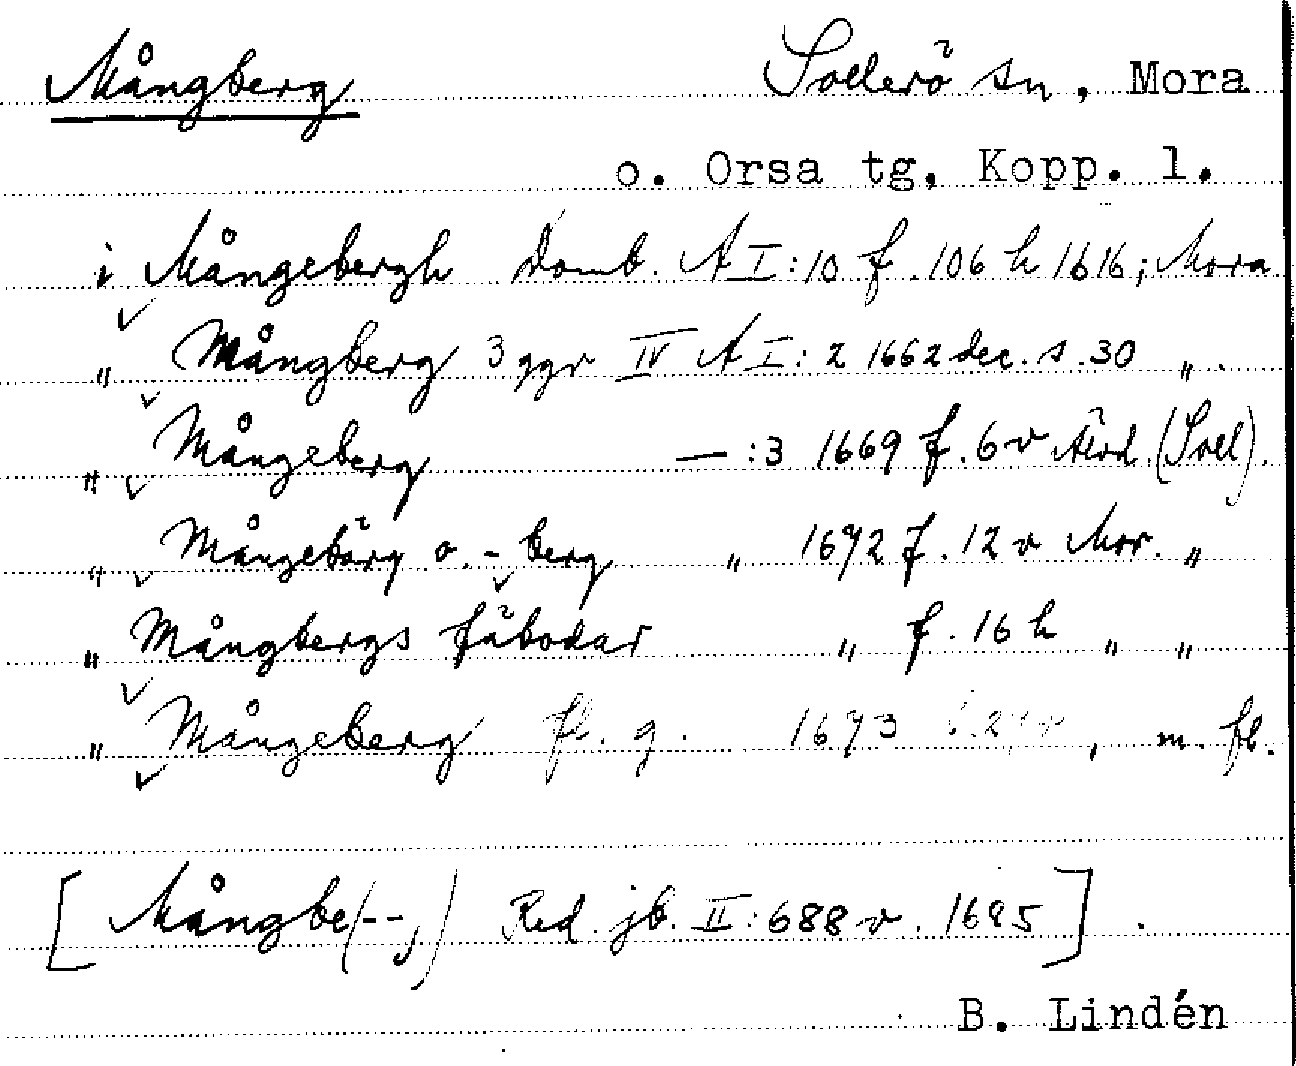 Mångberg Sollerö sn, Mora
o. Orsa tg, Kopp. l.
i Mångebergh Domb. A I:10 f. 106 h 1616; Mora
" Mångberg 3 ggr IV A I:2 1662 dec. s. 30 ".
" Mångeberg — :3 1669 f. 6 v Älvd. (Soll).
" Mångebärg o. -berg " 1672 f. 12 v Mor. "
" Mångbergs fäbodar " f. 16 h " "
" Mångeberg fl. g. 1673 , m. fl.
[ Mångbe(--,) Red. jb. II:688 v. 1695 ].
B. Lindén